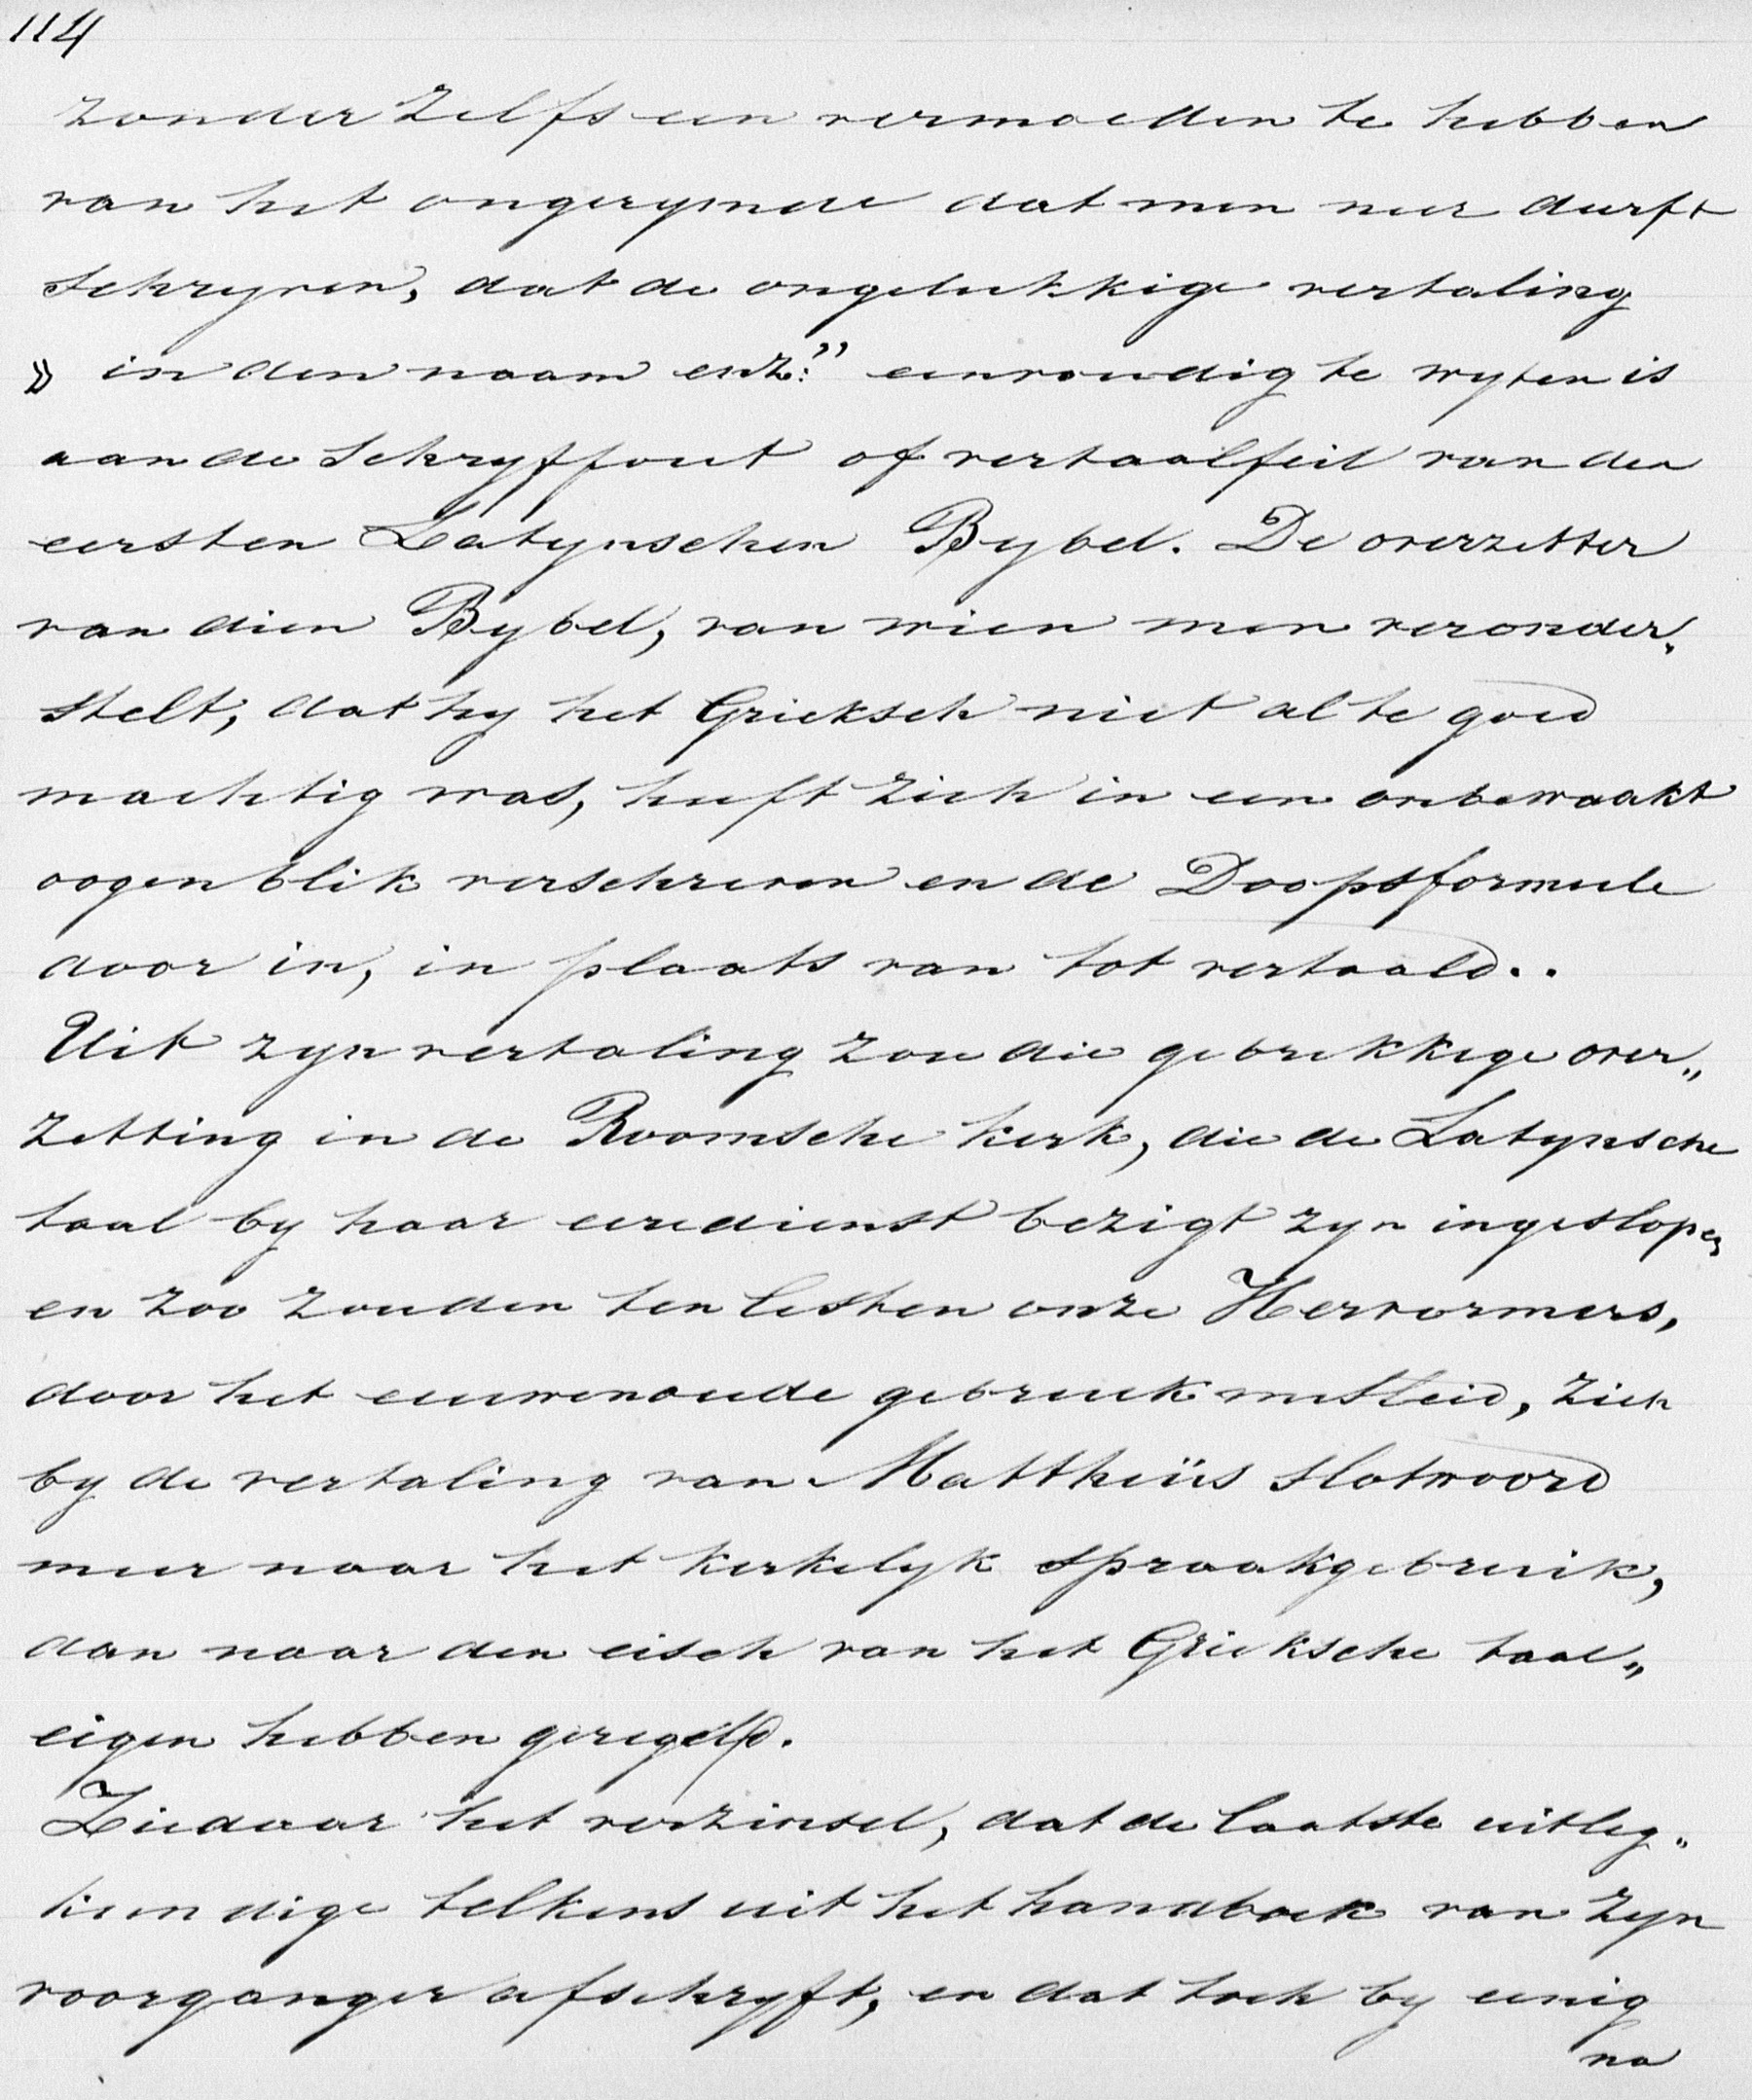 114
zonder zelfs een vermoeden te hebben
van het ongerymde dat men neer durft
schryven, dat de ongelukkige vertaling
» in den naam enz:" eenvoudig te wyten is
aan de schryffout of vertaalfeil van den
eersten Latynschen Bybel. De overzetter
van dien Bybel, van wien men veronder„
stelt, dat hy het Grieksch niet al te goed
machtig was, heeft zich in een onbewaakt
oogenblik verschreven en de Doopsformule
door in, in plaats van tot vertaald..
Uit zyn vertaling zou die gebrekkige over„
zetting in de Roomsche kerk, die de Latynsche
taal by haar eeredienst bezigt zyn ingeslopen
en zoo zouden ten lesten onze Hervormers,
door het eeuwenoude gebruik misleid, zich
by de vertaling van Mattheüs slotwoord
meer naar het kerkelyk spraakgebruik,
dan naar den eisch van het Grieksche taal„
eigen hebben geregeld.
Ziedaar het verzinsel, dat de laatste uitleg„
kundige telkens uit het handboek van zyn
voorganger afschryft, en dat toch by eenig
na